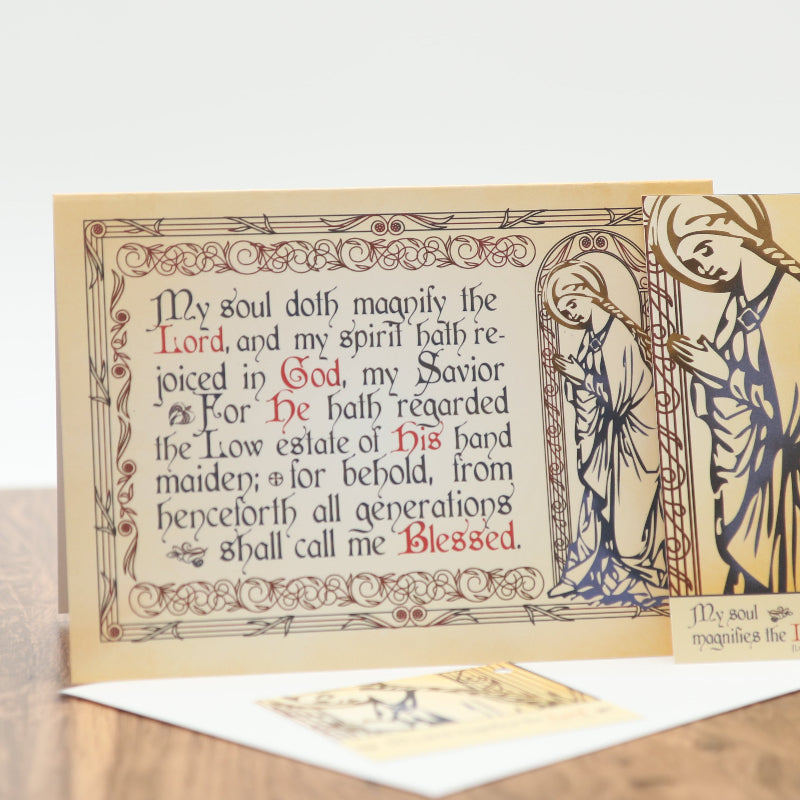 My soul doth magnify the
Lord, and my spirit hath re-
joiced in God, my Savior
For He hath regarded
the Low estate of His hand
maiden; for behold, from
henceforth all generations
shall call me Blessed.
My soul
magnifies the